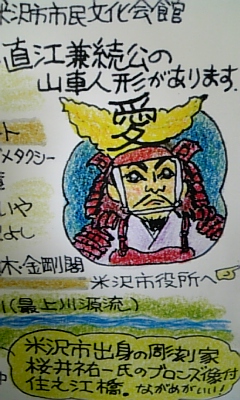 米沢市市民文化会館
直江兼続公の
山車人形があります.
愛
メタクシー
いや
よし
木・金剛閣
米沢市役所へ
(最上川源流)
米沢市出身の彫刻家
桜井祐一氏のブロンズ像付
住之江橋. ながめがいい!